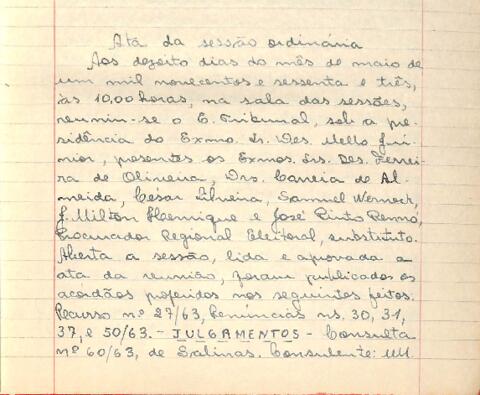 Ata da sessão ordinária
Aos dezoito dias do mês de maio de
um mil novecentos e sessenta e três,
às 10,00 horas, na sala das sessões,
reuniu-se o E. Tribunal, sob a pre-
sidência do Exmo. Sr. Des. Mello Jú-
nior, presentes os Exmos. Srs. Des. Ferrei-
ra de Oliveira, Drs. Correia de Al-
meida, César Silveira, Samuel Werneck,
J. Milton Henrique e José Pinto Rennó,
Procurador Regional Eleitoral, substituto.
Aberta a sessão, lida e aprovada a
ata da reunião, foram publicados os
acórdãos proferidos nos seguintes feitos:
Recurso nº 27/63, Denúncias ns. 30, 31,
37, e 50/63. - JULGAMENTOS - Consulta
nº 60/63, de Salinas. Consulente: MM.